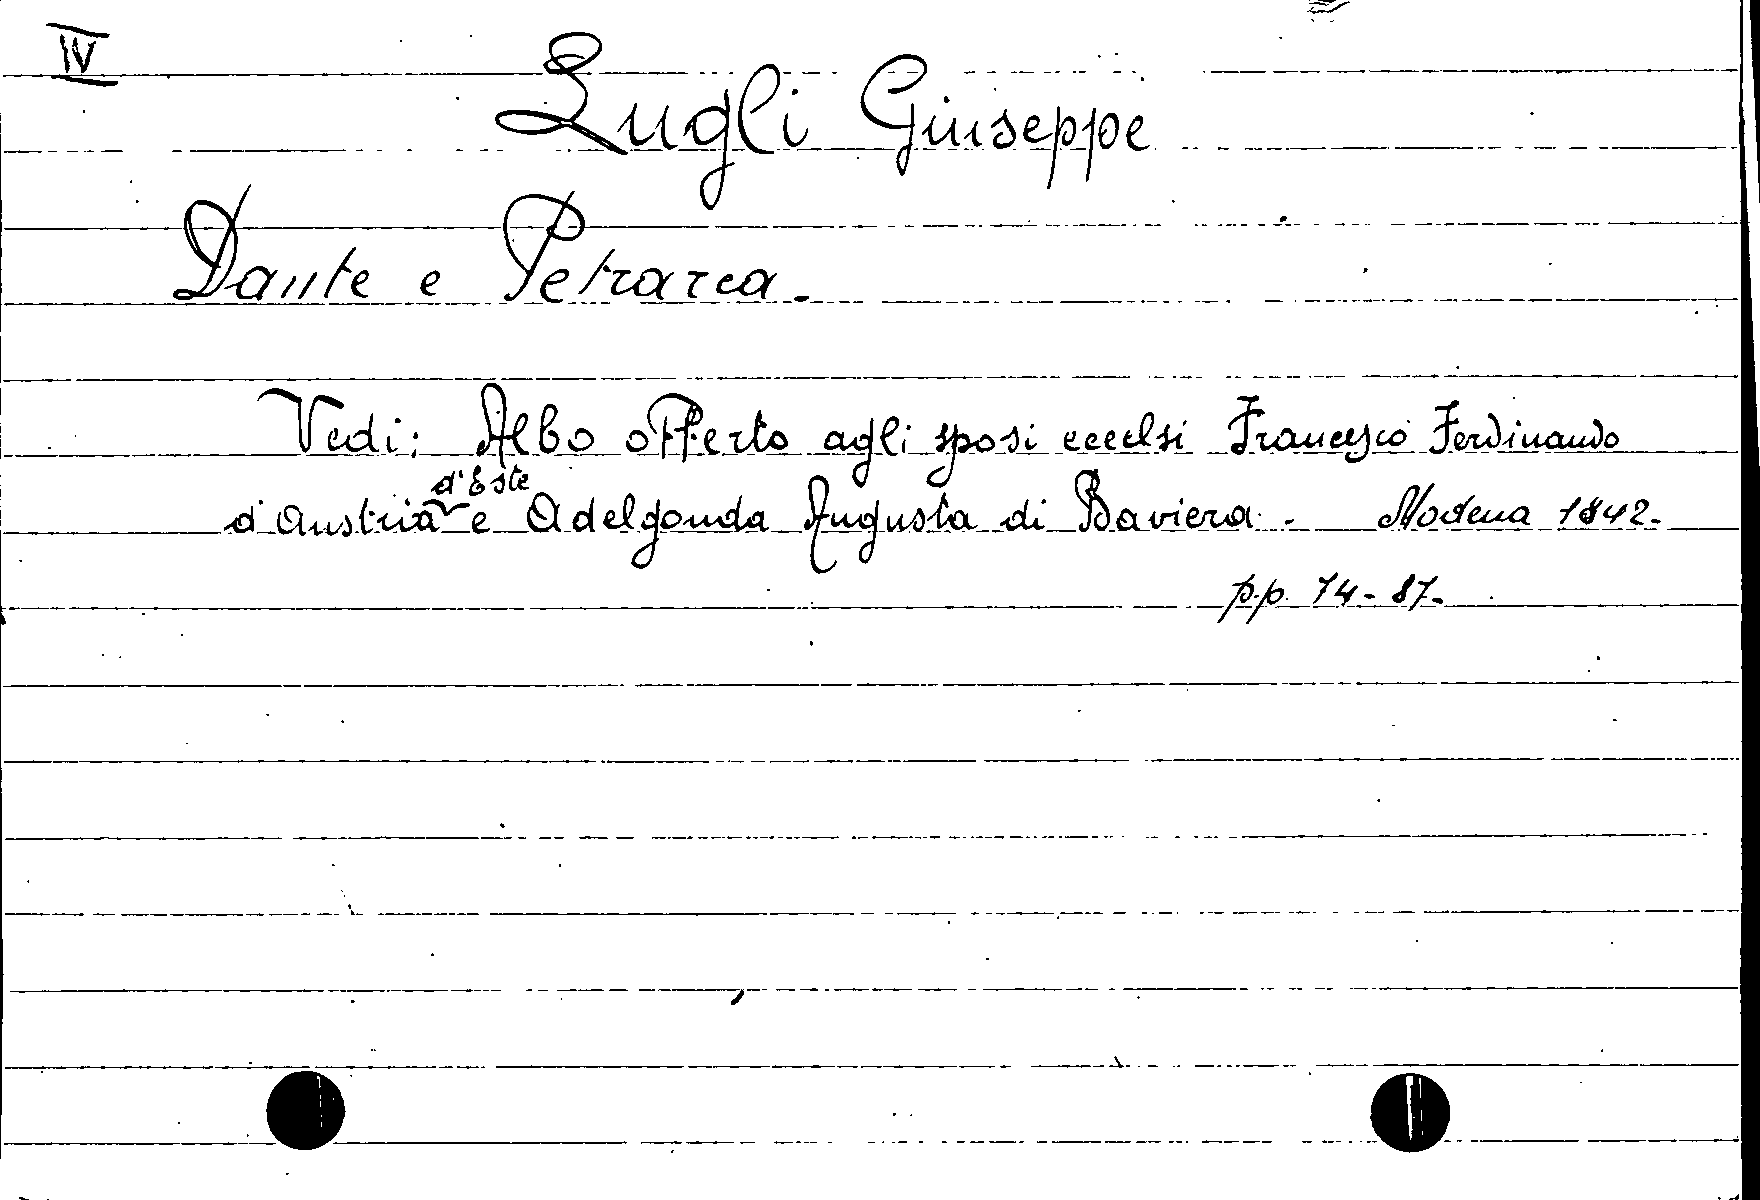 IV
Lugli Giuseppe
Dante e Petrarca.
Vedi: Albo offerto agli sposi eccelsi Francesco Ferdinando
d'Este
d'Austria e Adelgonda Augusta di Baviera. Modena 1842.
pp. 74-87.